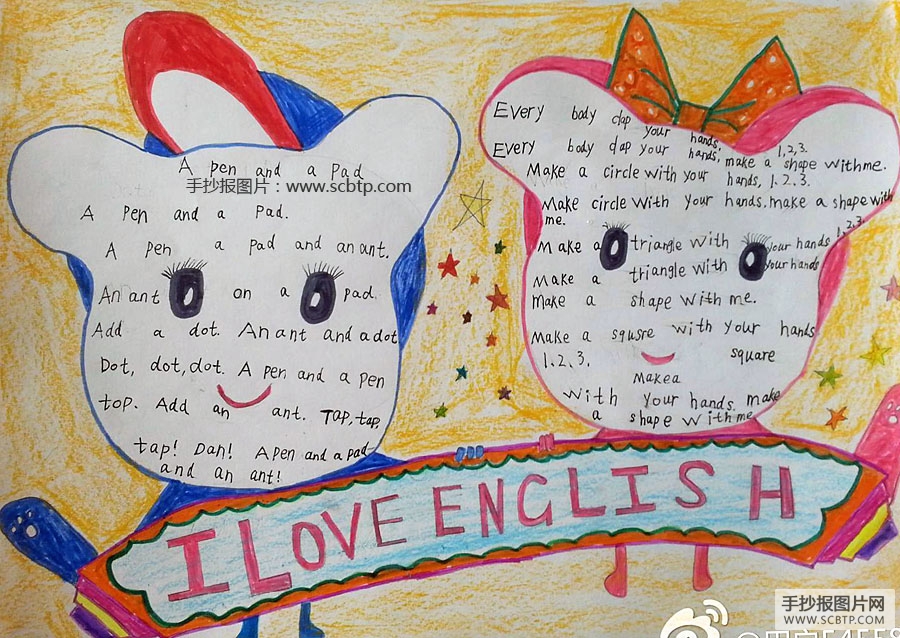 A pen and a Pad
手抄报图片：www.scbtp.com
A Pen and a Pad.
A Pen a Pad and an ant.
An ant on a pad.
Add a dot. An ant and a dot
Dot, dot, dot. A pen and a pen
top. Add an ant. Tap, tap,
tap! Dan! A Pen and a pad
and an ant!
Every body clap your hands,
Every body clap your hands, 1,2,3.
make a shape with me.
Make a circle with your hands, 1.2.3.
Make circle with your hands. make a shape with
me.
Make a triangle with your hands 1,2,3.
Make a triangle with your hands
Make a shape with me.
Make a squsre with your hands
1、2、3. square
Make a
with your hands. make
a shape with me
I LOVE ENGLISH
手抄报图片网
WWW.SCBTP.COM